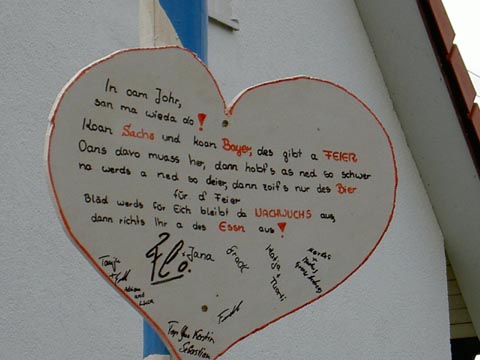 In oam Johr,
san ma wieda do!
Koan Sachs und koan Bayer, des gibt a FEIER
Oans davo muass her, dann habt's as ned so schwer
na werds a ned so deier, dann zoit's nur des Bier
für d' Feier
Bläd werds für Eich bleibt da NACHWUCHS aus
dann richts Ihr a des Essn aus!
Flo. Jana
Kerstin
Sebastian